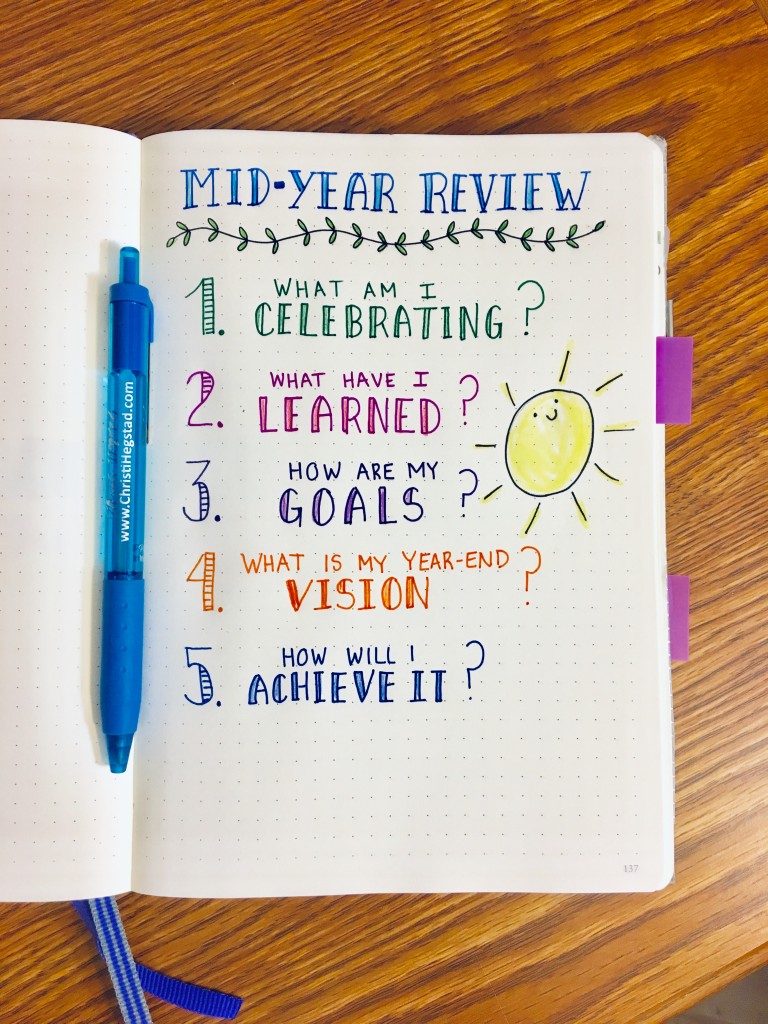 MID-YEAR REVIEW
1. WHAT AM I
CELEBRATING?
2. WHAT HAVE I
LEARNED?
3. HOW ARE MY
GOALS?
4. WHAT IS MY YEAR-END
VISION?
5. HOW WILL I
ACHIEVE IT?
www.ChristiHegstad.com
137